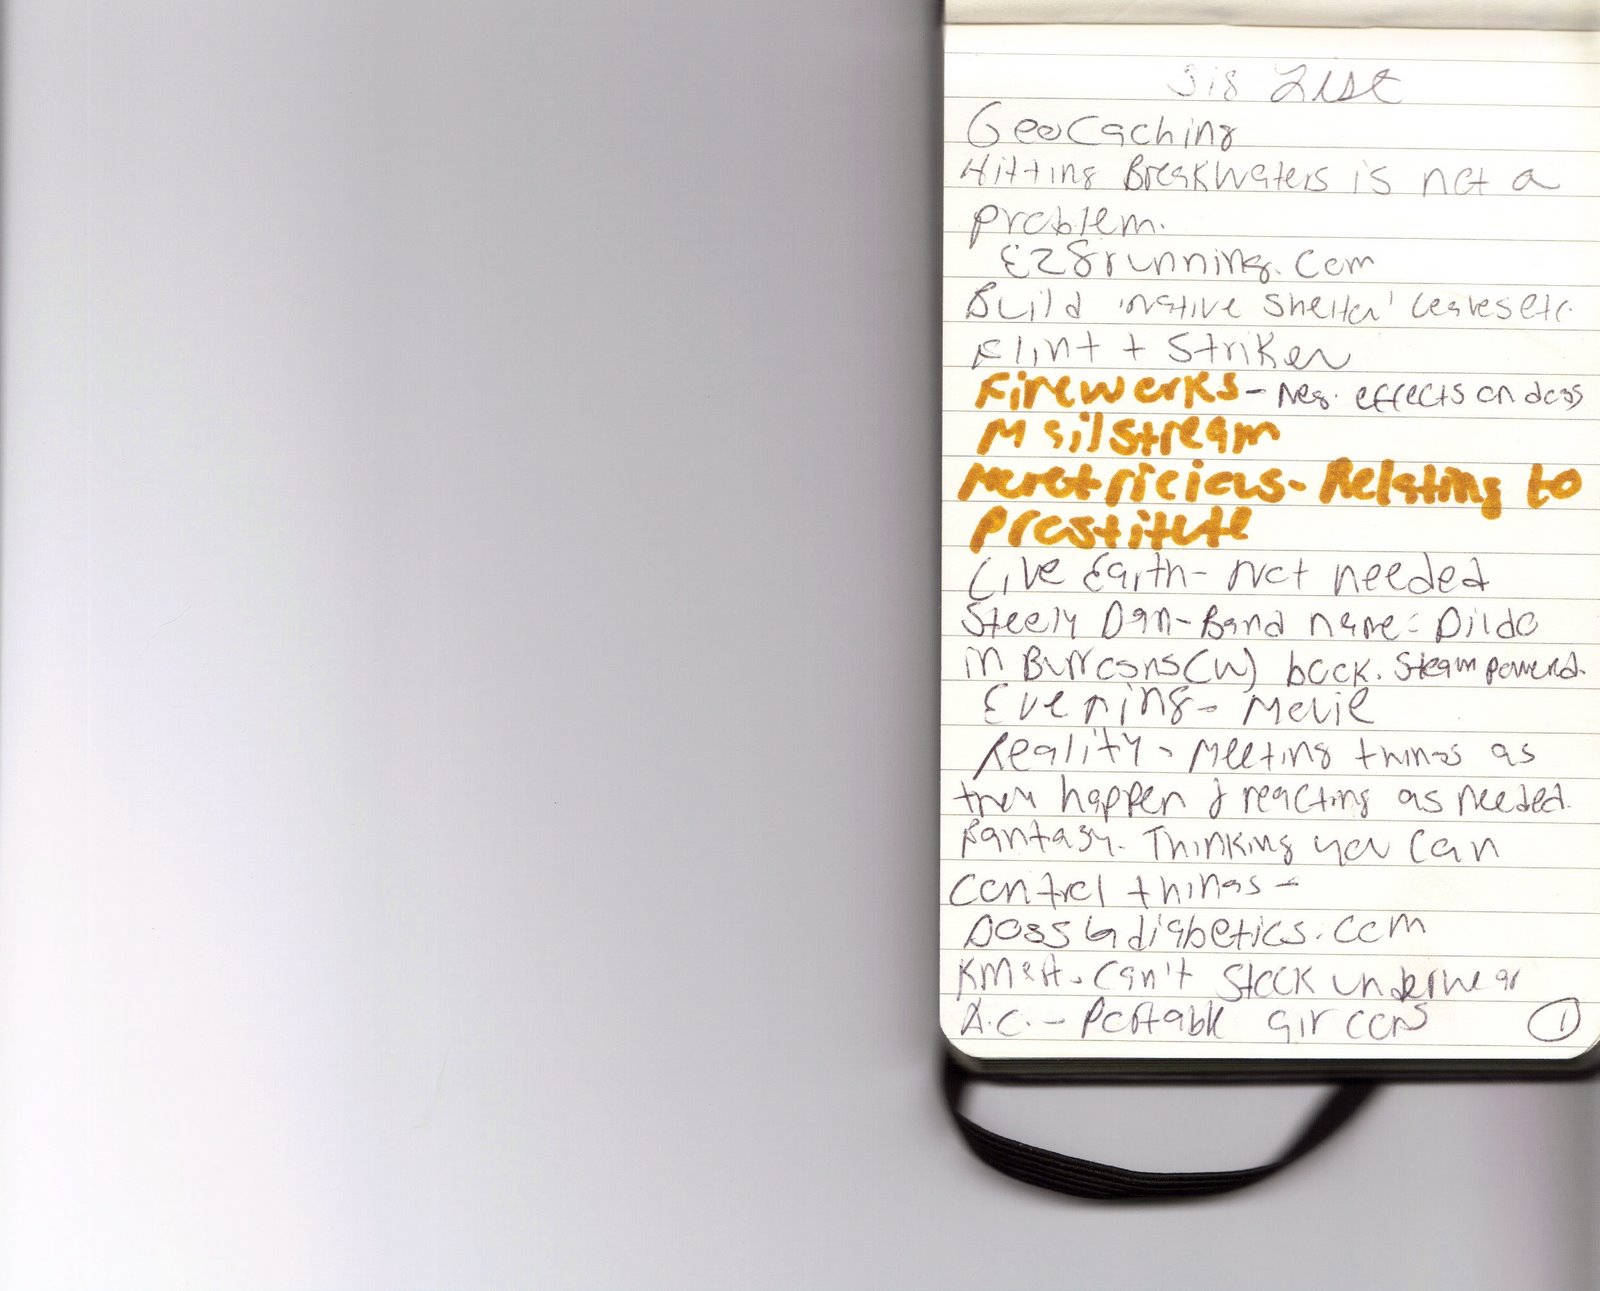 Big List
GeoCaching
Hitting Breakwaters is not a
problem.
EZ8running.com
Build 'native shelter' leaves etc.
Flint + Striker
Fireworks - neg. effects on dogs
Mailstream
Meretricious - Relating to
prostitute
Live Earth - not needed
Steely Dan - Band name: Dildo
in Burroghs (W) book. Steam powered.
Evening - Movie
Reality - Meeting things as
they happen & reacting as needed.
Fantasy. Thinking you can
control things -
Dogs4diabetics.com
KMart - Can't Stock underwear
A.C. - Portable air cons
1